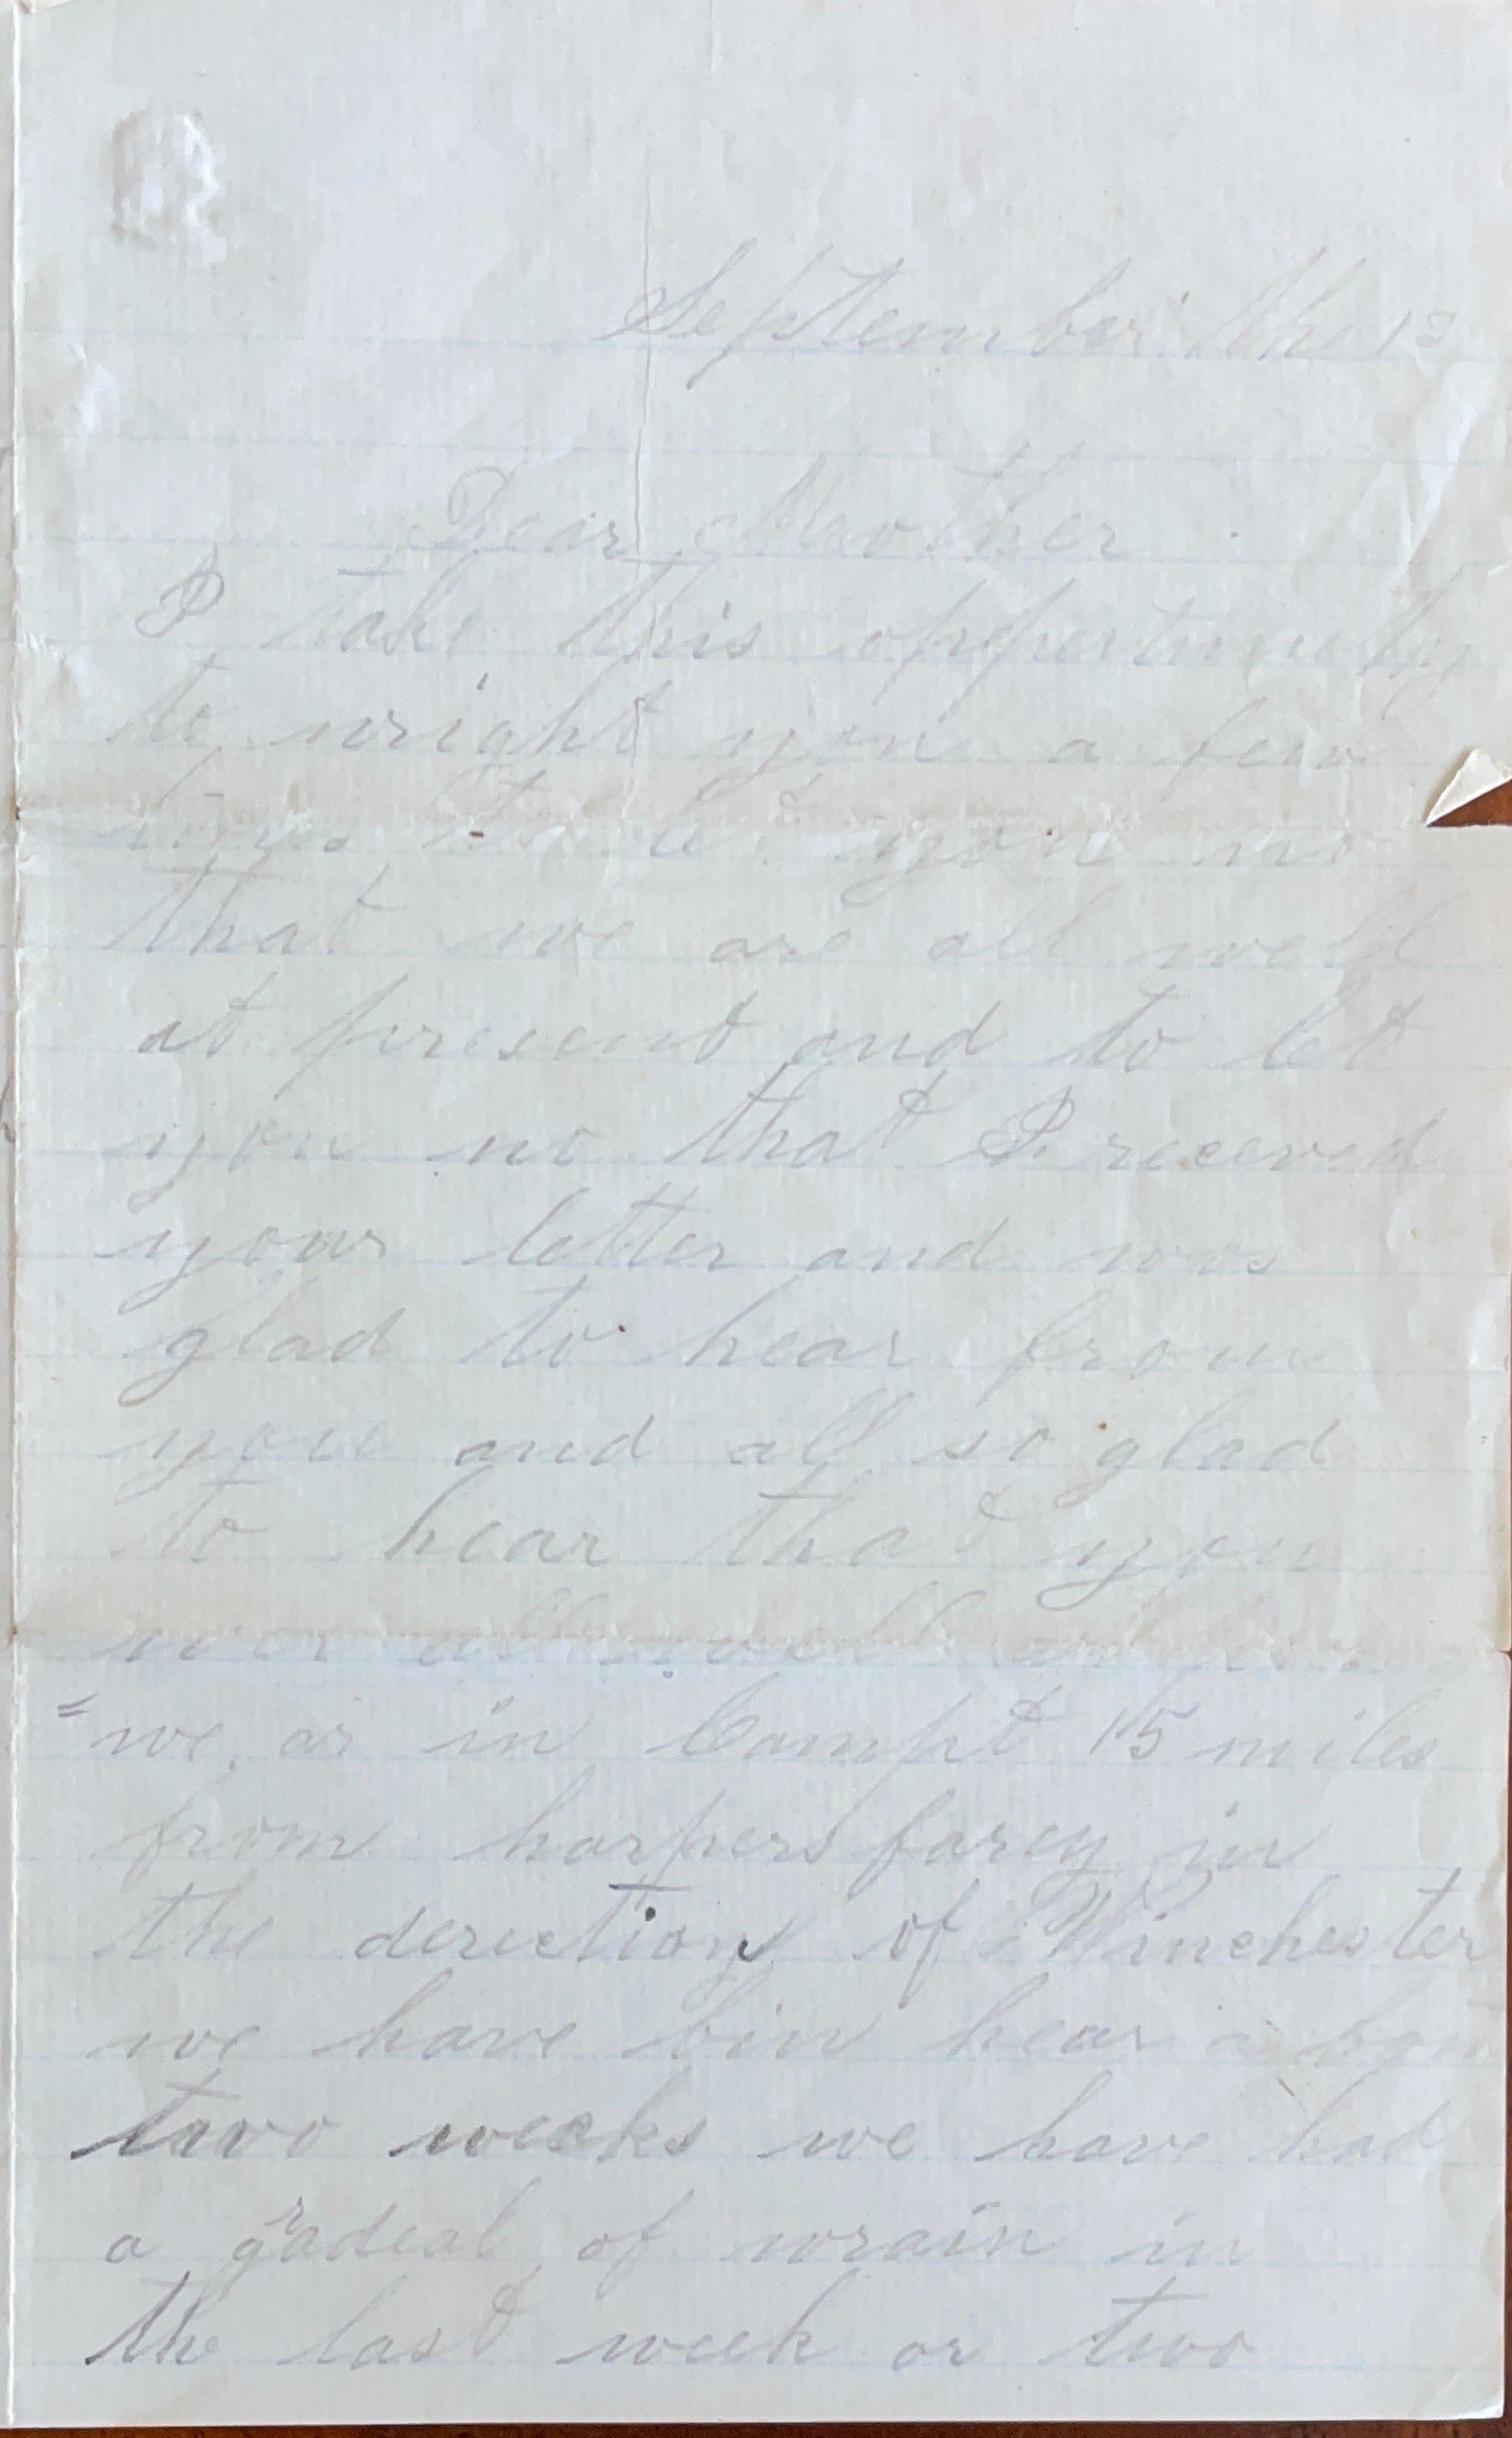 September the 12
Dear Mother
I take this oppertunity
to wright you a few
lines to let you no
that we are all well
at present and to let
you no that I receved
your letter and was
glad to hear from
you and all so glad
to hear that you
wer all well
we ar in Campt 15 miles
from harpers farey in
the derection of Winchester
we have bin hear a bout
two weeks we have had
a gradeal of wrain in
the last week or two